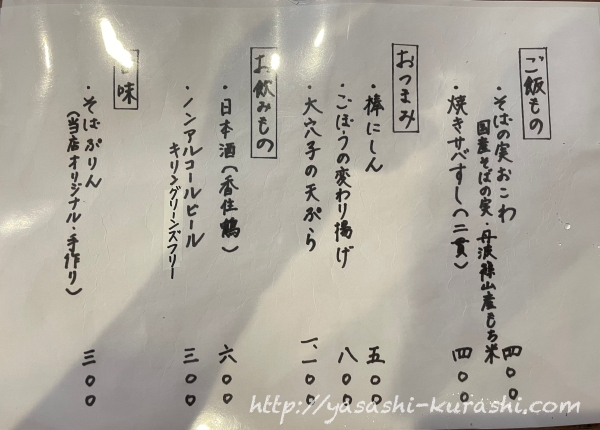 ご飯もの
・そばの実おこわ 四〇〇
国産そばの実・丹波篠山産もち米
・焼きサバすし(二貫) 四〇〇
おつまみ
・棒にしん 五〇〇
・ごぼうの変わり揚げ 八〇〇
・大穴子の天ぷら 一、一〇〇
お飲みもの
・日本酒(香住鶴) 六〇〇
・ノンアルコールビール 三〇〇
キリングリーンズフリー
味
・そばぷりん 三〇〇
(当店オリジナル・手作り)
http://yasashi-kurashi.com